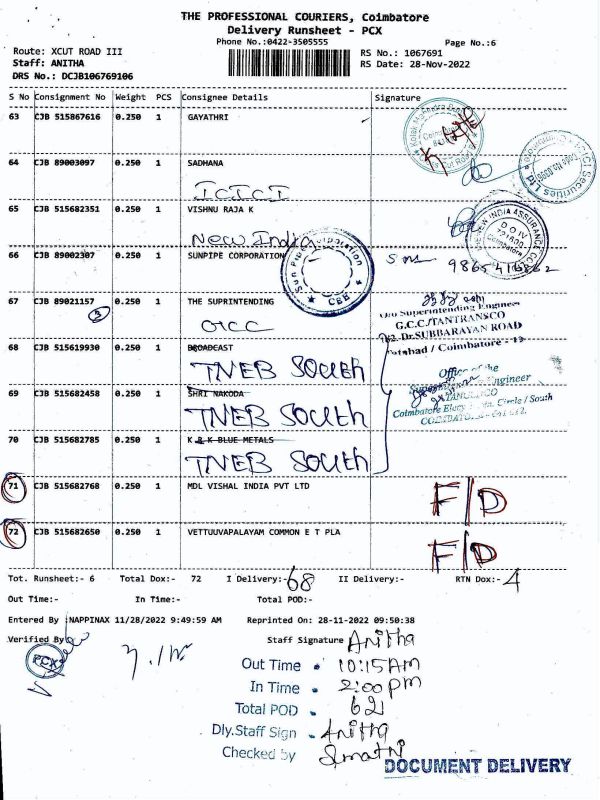 THE PROFESSIONAL COURIERS, Coimbatore
Delivery Runsheet - PCX
Phone No.:0422-3505555
Page No.:6
Route: XCUT ROAD III
RS No.: 1067691
Staff: ANITHA
RS Date: 28-Nov-2022
DRS No.: DCJB106769106
S No Consignment No Weight PCS Consignee Details Signature
63 CJB 515867616 0.250 1 GAYATHRI
64 CJB 89003097 0.250 1 SADHANA
ICICI
ICICI Securities Ltd
65 CJB 515682351 0.250 1 VISHNU RAJA K
New India
NEW INDIA ASSURANCE CO
D O IV
721800
Coimbatore
66 CJB 89002307 0.250 1 SUNPIPE CORPORATION
Sun Pipe Corporation
CBE
67 CJB 89021157 0.250 1 THE SUPRINTENDING
O/o Superintending Engineer
G.C.C./TANTRANSCO
Dr.SUBBARAYAN ROAD
Tatabad / Coimbatore - 12
68 CJB 515619930 0.250 1 BROADCAST
TNEB South
Office of the
Engineer
69 CJB 515682458 0.250 1 SHRI NAKODA
TNEB South
Circle / South
70 CJB 515682785 0.250 1 K & K BLUE METALS
TNEB South
71 CJB 515682768 0.250 1 MDL VISHAL INDIA PVT LTD F/D
72 CJB 515682650 0.250 1 VETTUUVAPALAYAM COMMON E T PLA F/D
Tot. Runsheet:- 6 Total Dox:- 72 I Delivery:- 68 II Delivery:- RTN Dox:- 4
Out Time:- In Time:- Total POD:-
Entered By :NAPPINAX 11/28/2022 9:49:59 AM Reprinted On: 28-11-2022 09:50:38
Verified By
Staff Signature Anitha
PCX
Out Time 10:15 AM
In Time 2:00 pm
Total POD 62
Dly.Staff Sign Anitha
Checked by
DOCUMENT DELIVERY